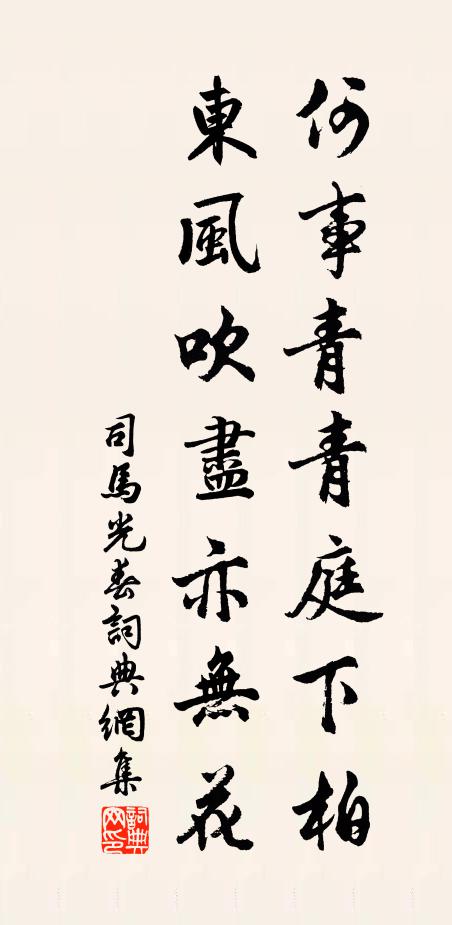 何事青青庭下柏
東風吹盡亦無花
司馬光春詞典網集
詞典網印